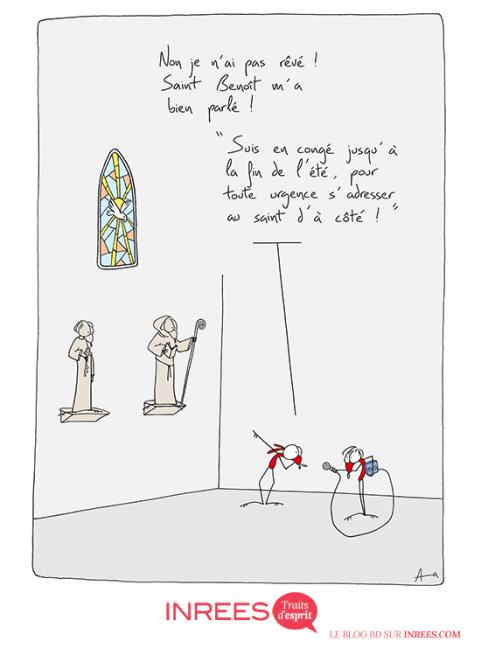 Non je n'ai pas rêvé !
Saint Benoît m'a
bien parlé !
"Suis en congé jusqu'à
la fin de l'été, pour
toute urgence s'adresser
au saint d'à côté !"
A—a
INREES Traits
d'esprit
LE BLOG BD SUR INREES.COM